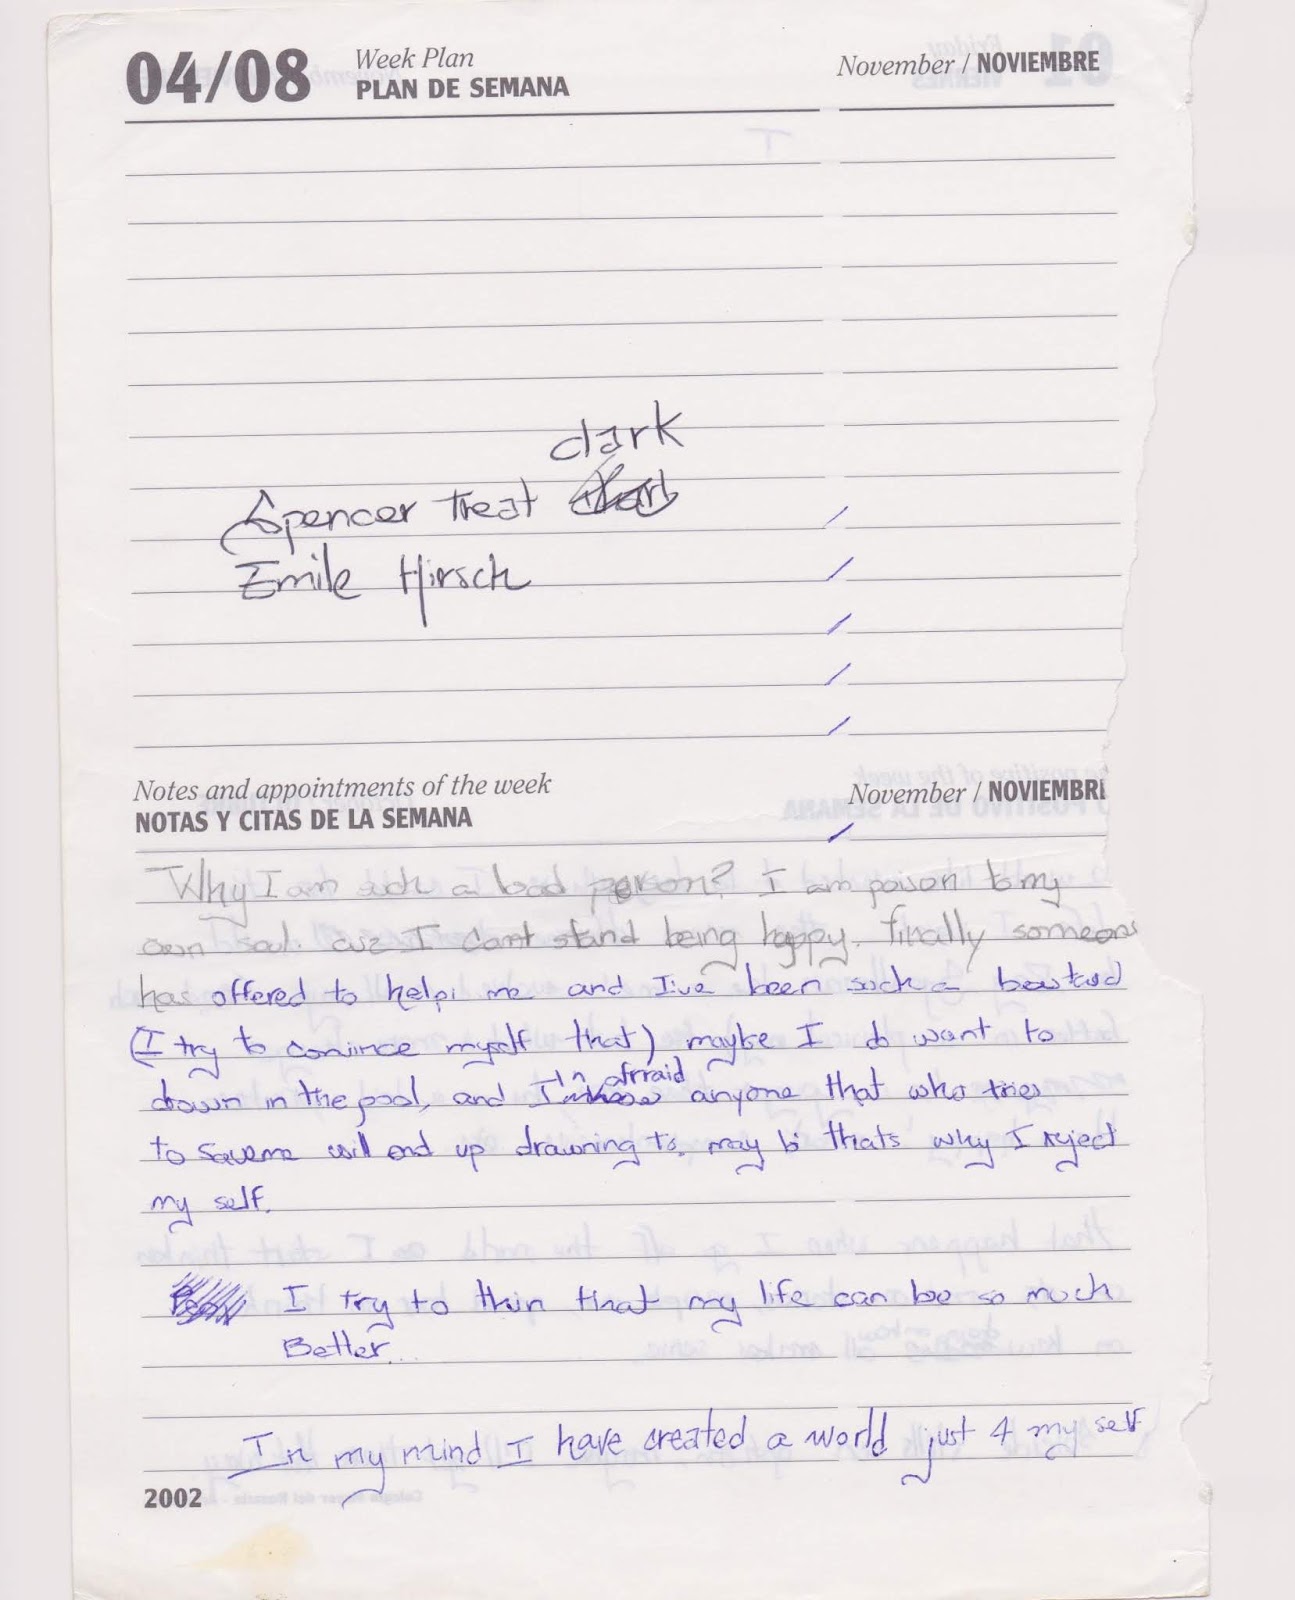 04/08
Week Plan
PLAN DE SEMANA
November / NOVIEMBRE
dark
Spencer Treat
Emile Hirsch
Notes and appointments of the week
NOTAS Y CITAS DE LA SEMANA
November / NOVIEMBRE
Why I am such a bad person? I am poison to my
own soul. cuz I cant stand being happy. finally someone
has offered to help me and I've been such a bastard
(I try to convince myself that) maybe I do want to
In afrraid
drown in the pool, and I anyone that who tries
to save me will end up drawning to, may bi thats why I reject
my self.
I try to thin that my life can be so much
Better...
In my mind I have created a world just 4 my self
2002